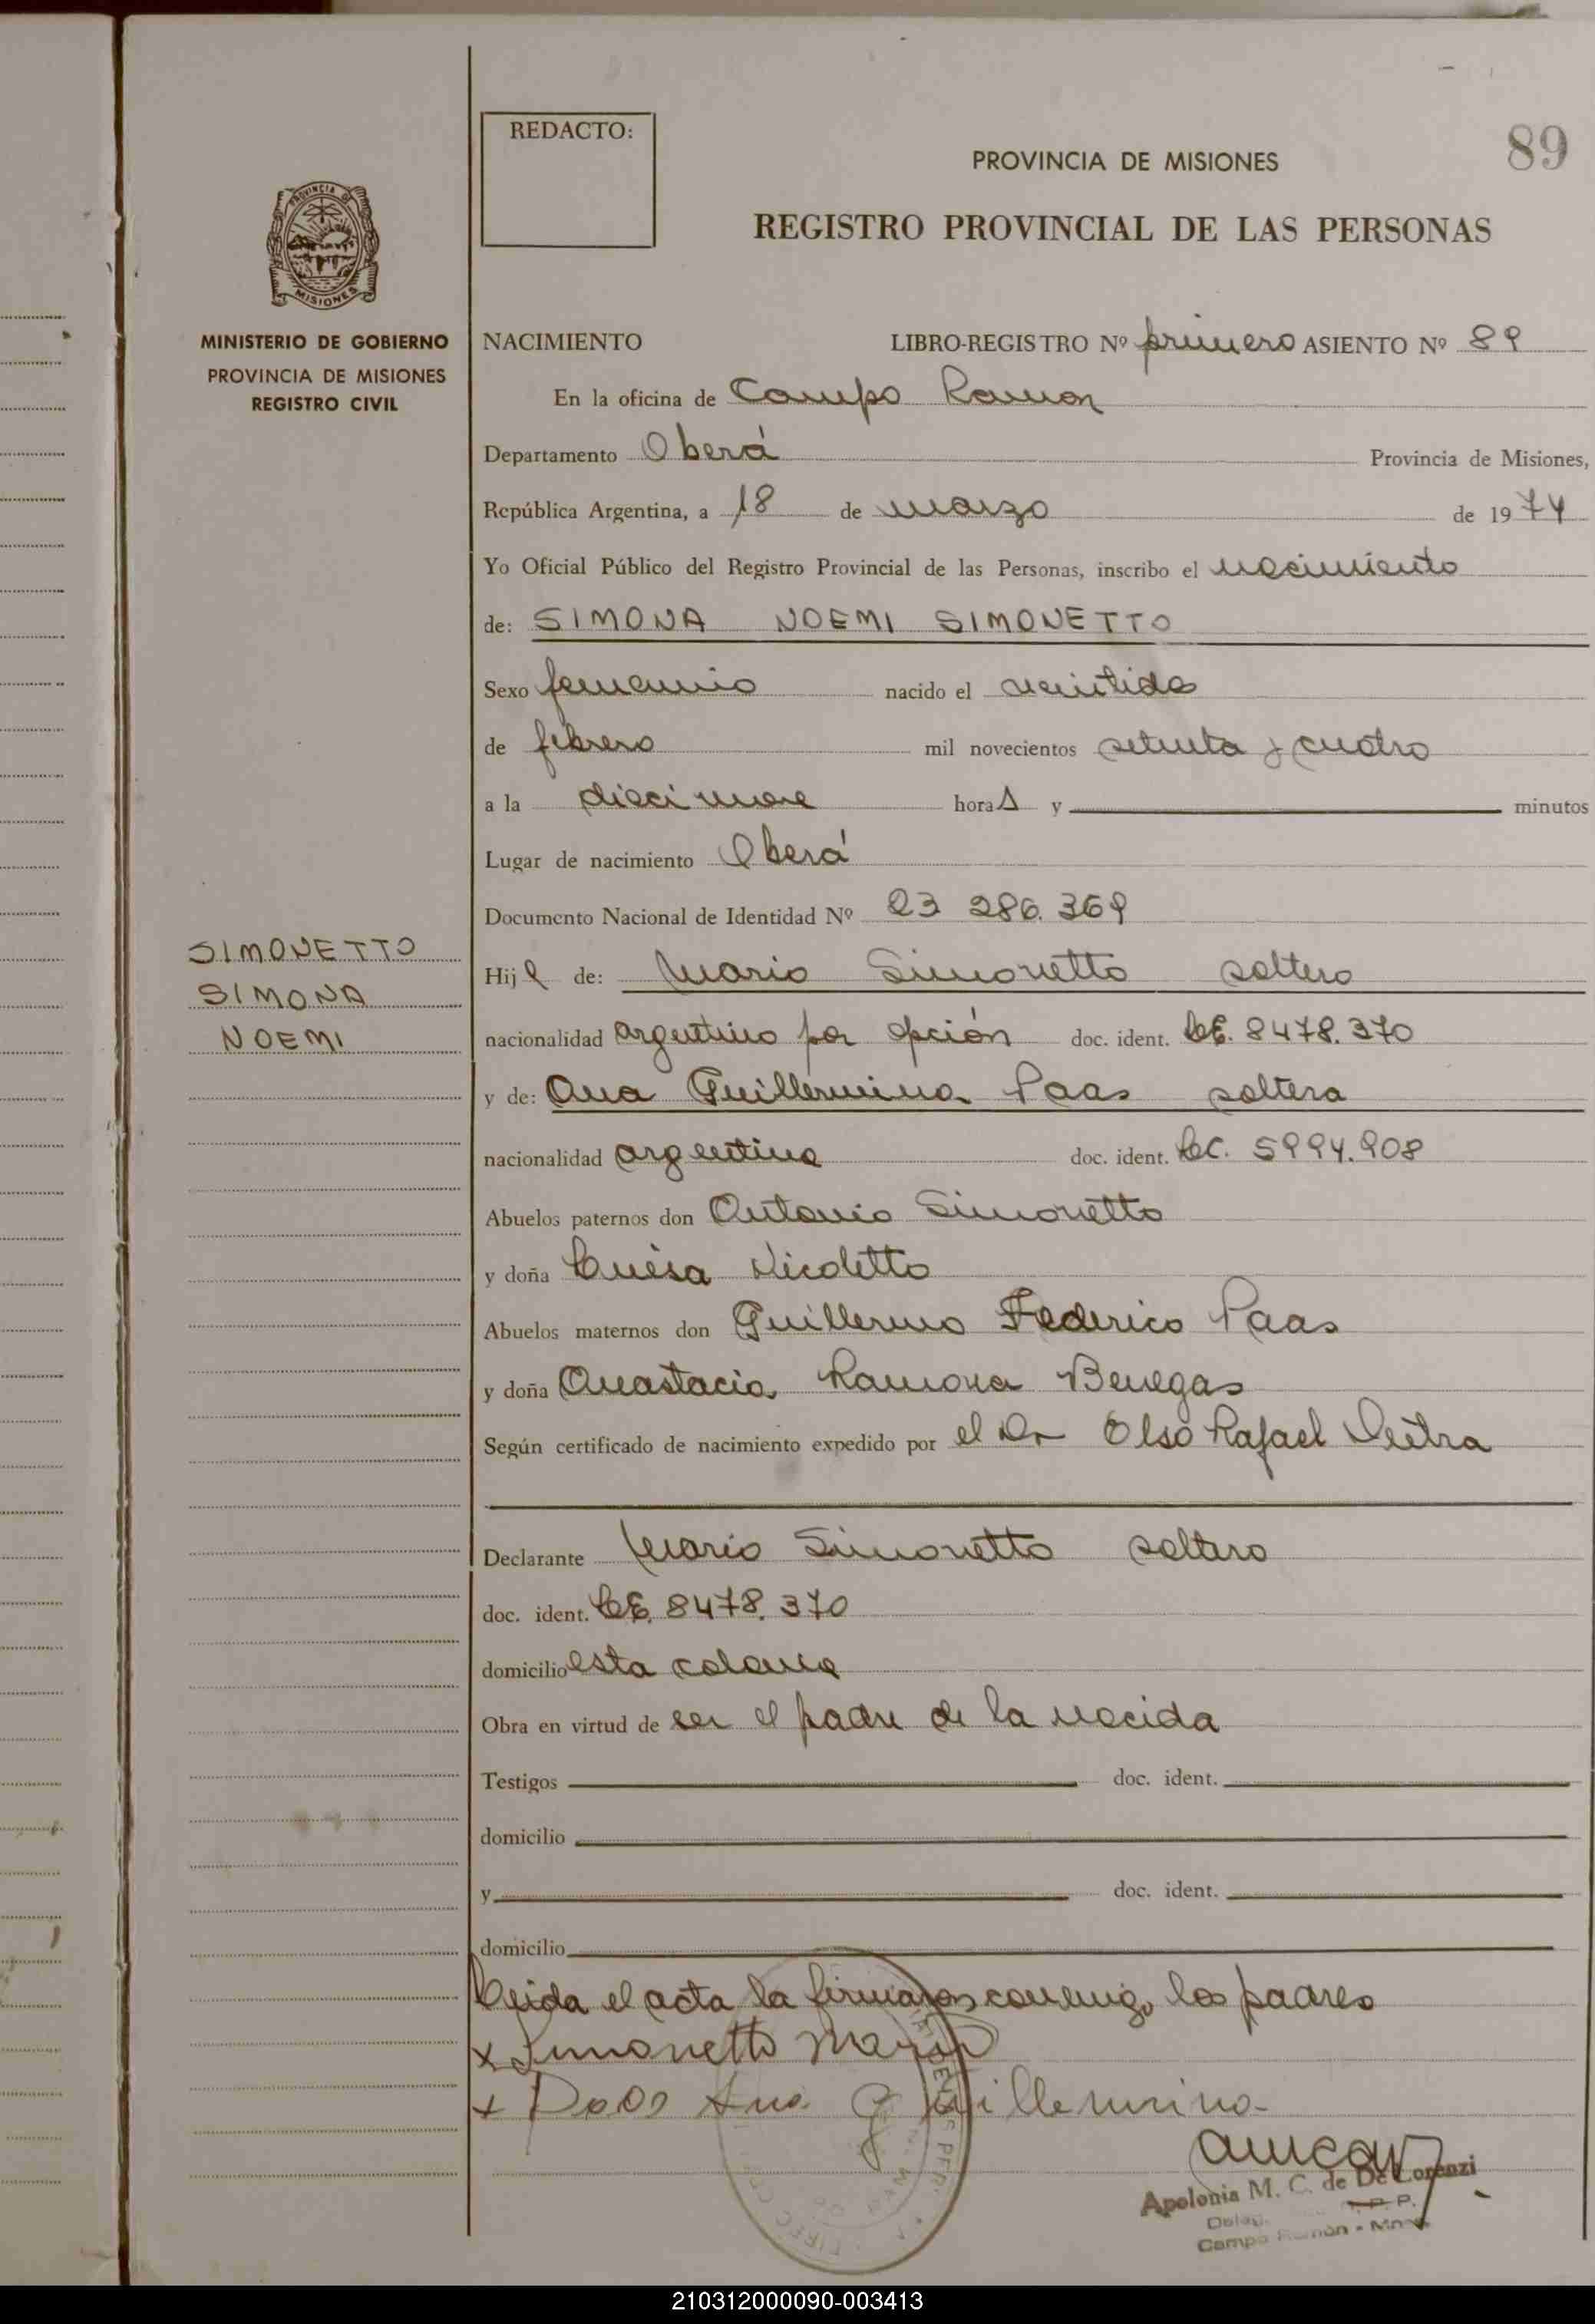 REDACTO:
PROVINCIA DE MISIONES
89
REGISTRO PROVINCIAL DE LAS PERSONAS
PROVINCIA DE
MISIONES
MINISTERIO DE GOBIERNO
PROVINCIA DE MISIONES
REGISTRO CIVIL
NACIMIENTO LIBRO-REGISTRO Nº primero ASIENTO Nº 89
En la oficina de Campo Ramon
Departamento Oberá Provincia de Misiones,
República Argentina, a 18 de marzo de 1974
Yo Oficial Público del Registro Provincial de las Personas, inscribo el nacimiento
de: SIMONA NOEMI SIMONETTO
Sexo femenino nacido el veintidos
de febrero mil novecientos setenta y cuatro
a la diecinueve horas y minutos
Lugar de nacimiento Oberá
Documento Nacional de Identidad Nº 23 286.369
SIMONETTO
SIMONA
NOEMI
Hija de: Mario Simonetto soltero
nacionalidad argentino por opción doc. ident. LE. 8478.370
y de: Ana Guillermina Paas soltera
nacionalidad argentina doc. ident. LC. 5994.908
Abuelos paternos don Antonio Simonetto
y doña Luisa Nicoletto
Abuelos maternos don Guillermo Federico Paas
y doña Anastacia Ramona Benegas
Según certificado de nacimiento expedido por el Dr Olso Rafael
Declarante Mario Simonetto soltero
doc. ident. LE. 8478.370
domicilio esta colonia
Obra en virtud de ser el padre de la nacida
Testigos doc. ident.
domicilio
y doc. ident.
domicilio
Leida el acta la firmaron conmigo los padres
x Simonetto Mario
x Paas Ana Guillermina
Apolonia M. C. de De Lorenzi
Campo Ramón - Mnes
210312000090-003413